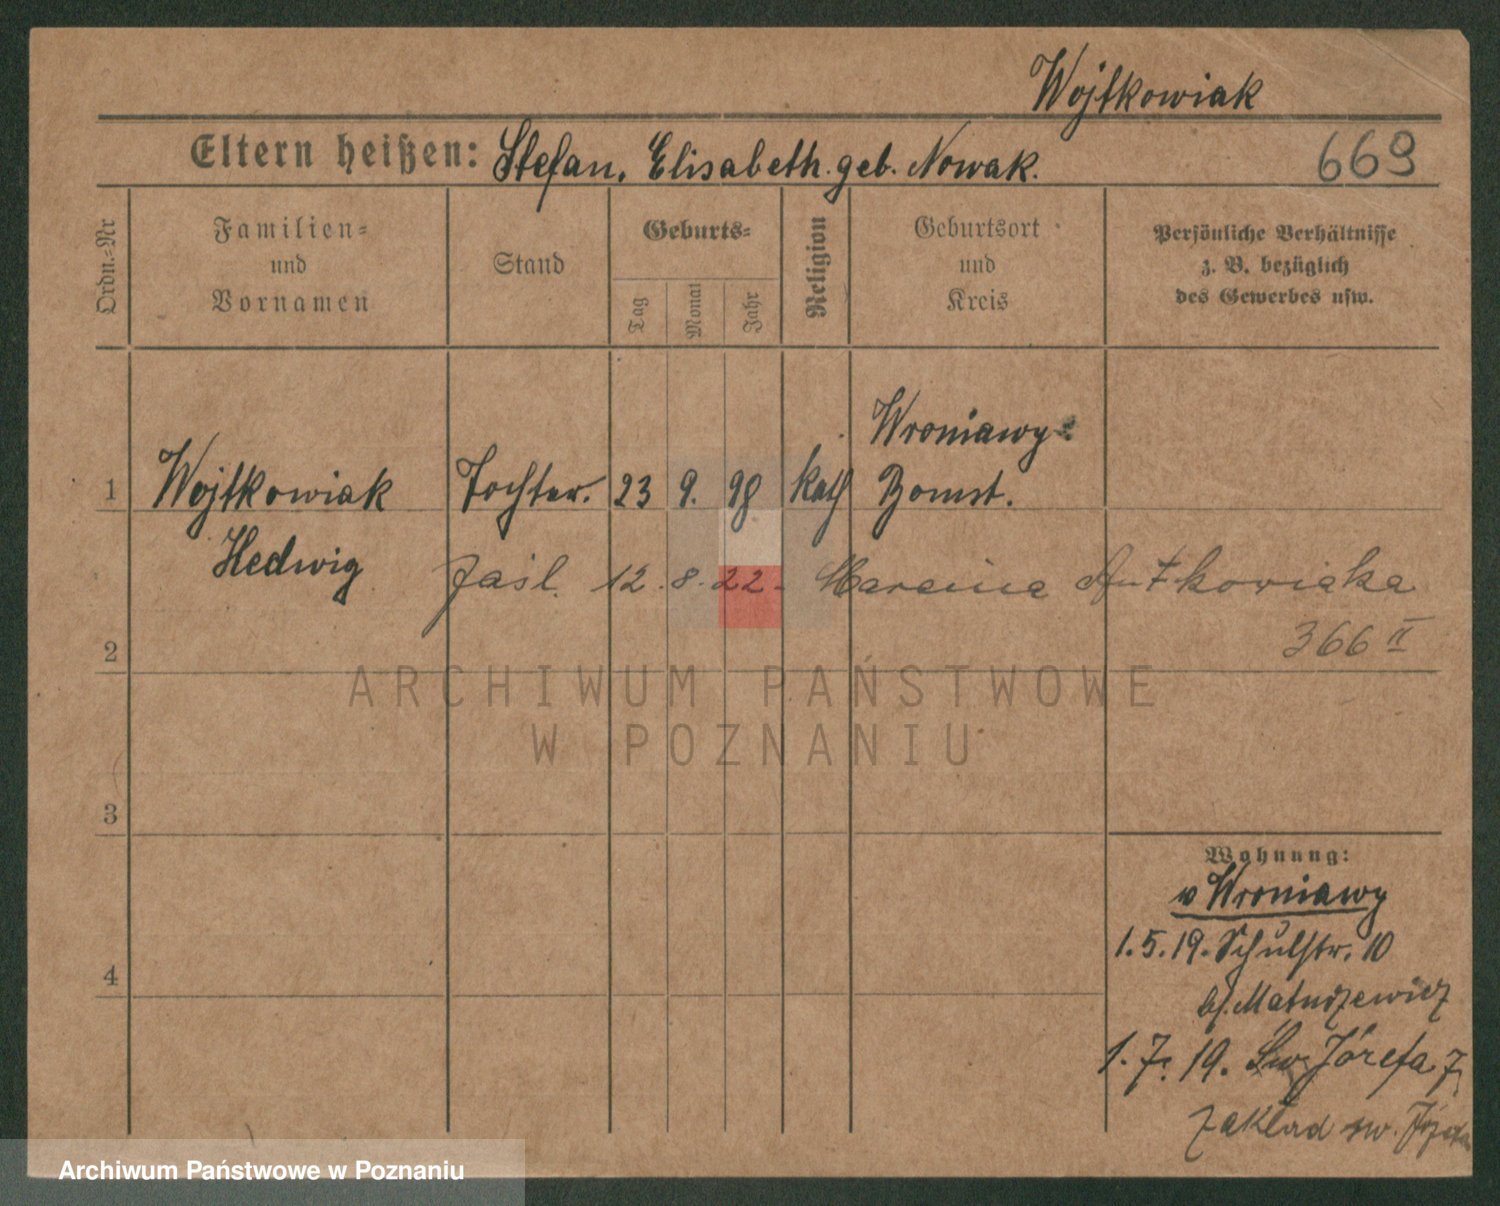 Wojtkowiak
Eltern heißen: Stefan, Elisabeth geb. Nowak.
669
Ordn.-Nr
Familien-
und
Vornamen
Stand
Geburts-
Tag
Monat
Jahr
Religion
Geburtsort
und
Kreis
Persönliche Verhältnisse
z. B. bezüglich
des Gewerbes usw.
Wroniawy
1 Wojtkowiak Tochter. 23 9. 98 Kath Bomst.
Hedwig
12.8.22- Antkowiaka
366 II
2
ARCHIWUM PAŃSTWOWE
W POZNANIU
3
Wohnung:
w Wroniawy
4
1.5.19. Schulstr. 10
bf. Matuszewicz
1.7.19. Św Józefa 7
zakład św. Józefa
Archiwum Państwowe w Poznaniu